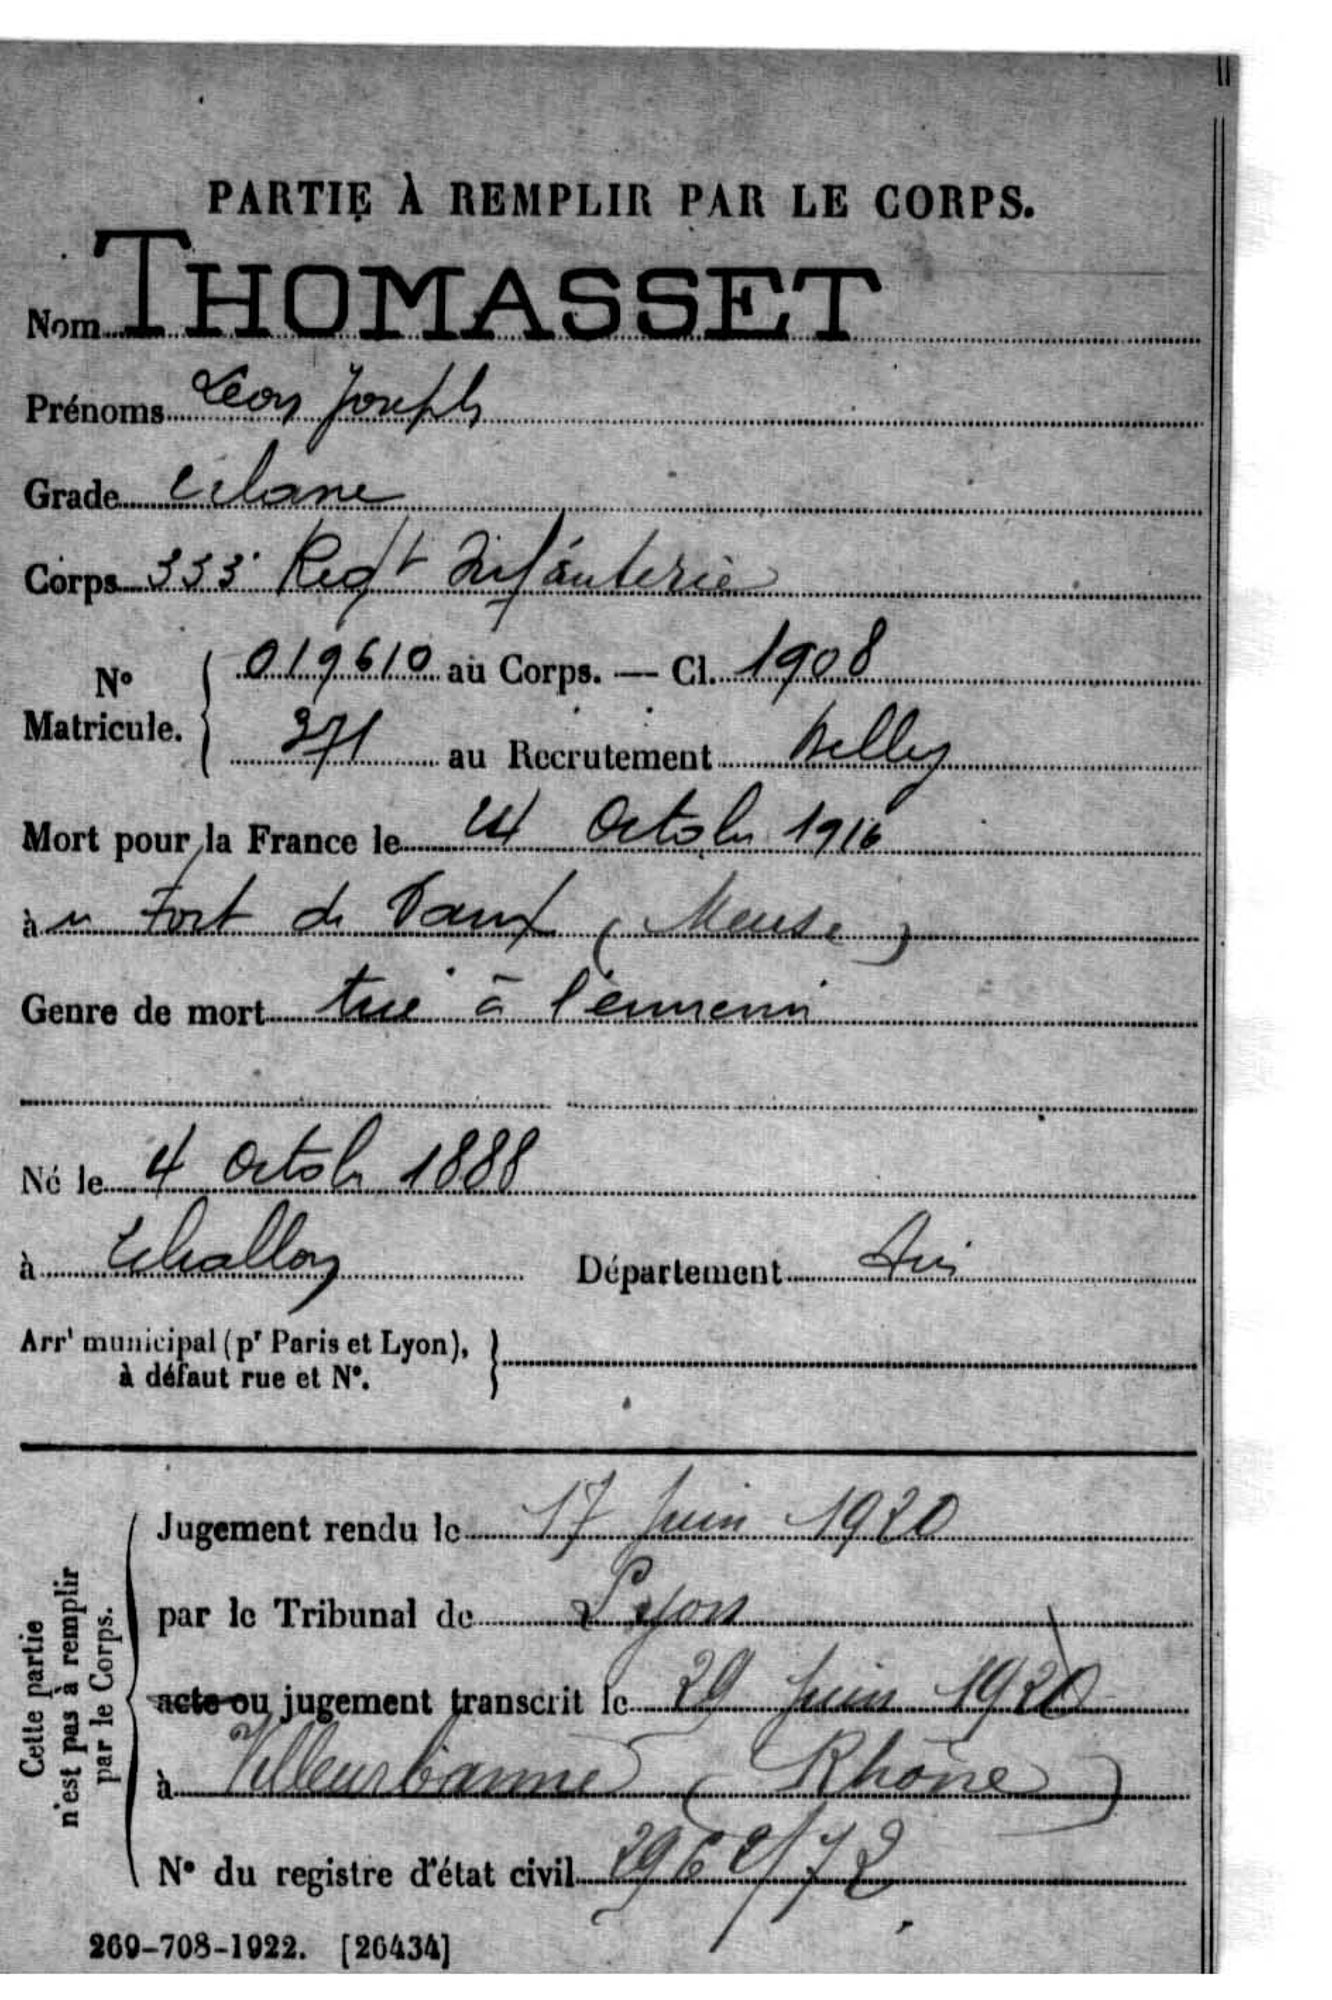 PARTIE À REMPLIR PAR LE CORPS.
Nom THOMASSET
Prénoms Léon Joseph
Grade
Corps 333e Regt Infanterie
No Matricule. 019610 au Corps. — Cl. 1908
371 au Recrutement Belley
Mort pour la France le 24 Octobre 1916
à Fort de Vaux (Meuse)
Genre de mort tué à l'ennemi
Né le 4 Octobre 1888
à Echallon Département Ain
Arrt municipal (pr Paris et Lyon),
à défaut rue et No.
Cette partie
n'est pas à remplir
par le Corps.
Jugement rendu le 17 Juin 1920
par le Tribunal de Lyon
acte ou jugement transcrit le 29 Juin 1920
à Villeurbanne (Rhône)
No du registre d'état civil
269-708-1922. [26434]